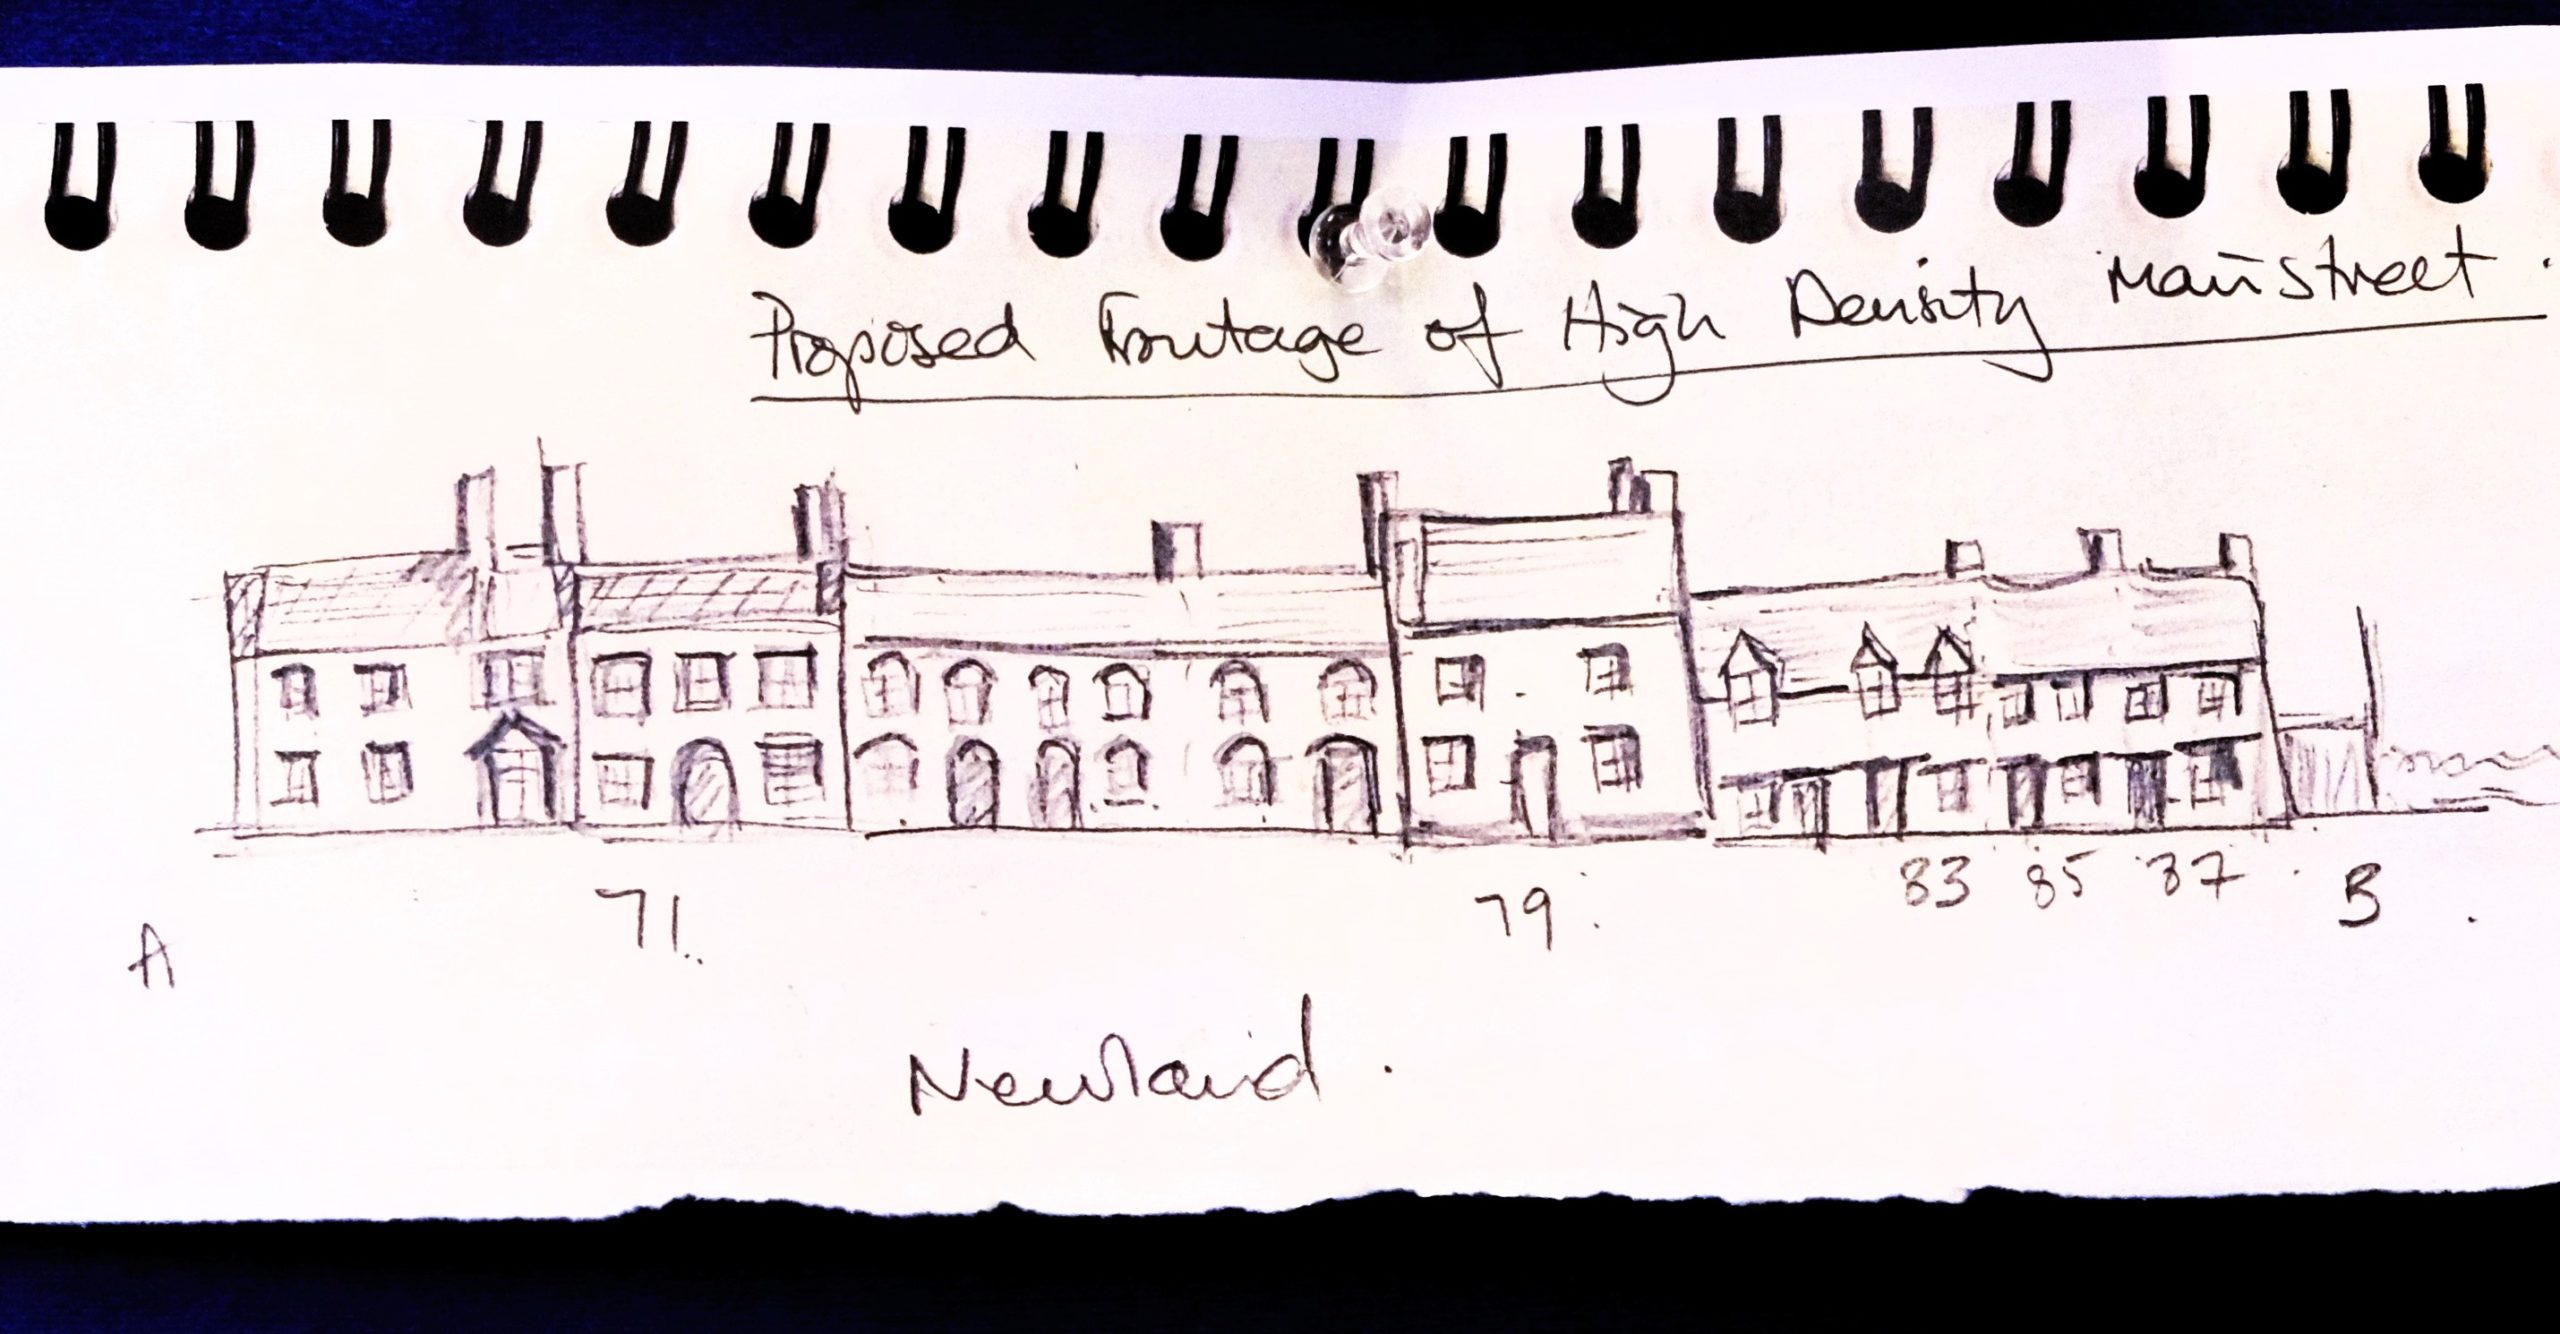 Proposed Frontage of High Density Main Street.
71.
79.
83 85 87
A
B
Newland.